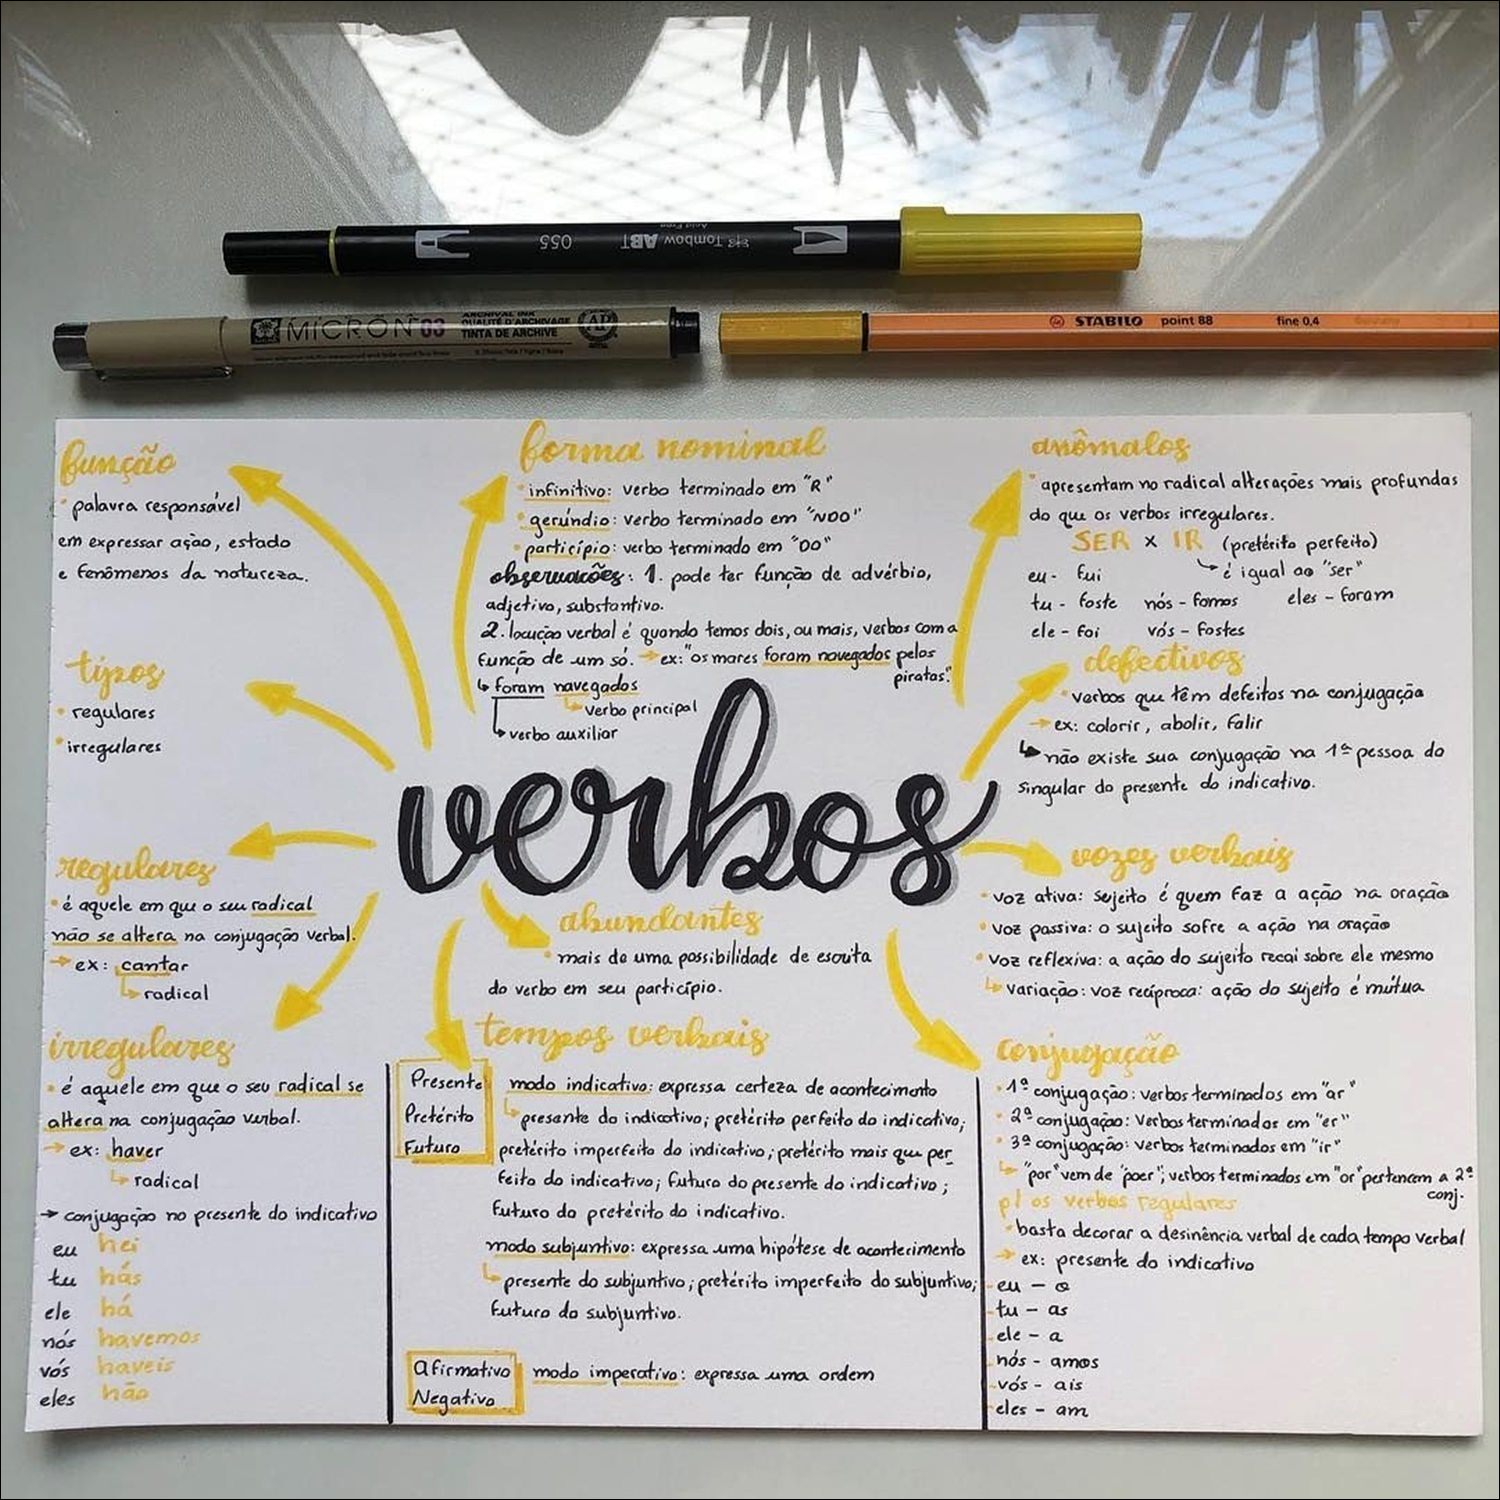 Acid Free
Tombow ABT
055
MICRON 03
ARCHIVAL INK
QUALITÉ D'ARCHIVAGE
TINTA DE ARCHIVE
AP
STABILO point 88 fine 0,4
função
• palavra responsável
em expressar ação, estado
e fenômenos da natureza.
tipos
• regulares
• irregulares
regulares
• é aquele em que o seu radical
não se altera na conjugação verbal.
→ ex: cantar
↳ radical
irregulares
• é aquele em que o seu radical se
altera na conjugação verbal.
→ ex: haver
↳ radical
→ conjugação no presente do indicativo
eu hei
tu hás
ele há
nós havemos
vós haveis
eles hão
forma nominal
• infinitivo: verbo terminado em "R"
• gerúndio: verbo terminado em "NDO"
• particípio: verbo terminado em "DO"
observações: 1. pode ter função de advérbio,
adjetivo, substantivo.
2. locução verbal é quando temos dois, ou mais, verbos com a
função de um só. → ex: "os mares foram navegados pelos
piratas".
↳ foram navegados
↳ verbo principal
↳ verbo auxiliar
verbos
abundantes
• mais de uma possibilidade de escrita
do verbo em seu particípio.
tempos verbais
Presente
Pretérito
Futuro
modo indicativo: expressa certeza de acontecimento
↳ presente do indicativo; pretérito perfeito do indicativo;
pretérito imperfeito do indicativo; pretérito mais que per_
feito do indicativo; futuro do presente do indicativo;
futuro do pretérito do indicativo.
modo subjuntivo: expressa uma hipótese de acontecimento
↳ presente do subjuntivo; pretérito imperfeito do subjuntivo;
futuro do subjuntivo.
Afirmativo
Negativo
modo imperativo: expressa uma ordem
anômalos
• apresentam no radical alterações mais profundas
do que os verbos irregulares.
SER x IR (pretérito perfeito)
↳ é igual ao "ser"
eu - fui
tu - foste nós - fomos eles - foram
ele - foi vós - fostes
defectivos
• verbos que têm defeitos na conjugação
→ ex: colorir, abolir, falir
↳ não existe sua conjugação na 1ª pessoa do
singular do presente do indicativo.
vozes verbais
• voz ativa: sujeito é quem faz a ação na oração
• voz passiva: o sujeito sofre a ação na oração
• voz reflexiva: a ação do sujeito recai sobre ele mesmo
↳ variação: voz recíproca: ação do sujeito é mútua
conjugação
• 1ª conjugação: verbos terminados em "ar"
• 2ª conjugação: verbos terminados em "er"
• 3ª conjugação: verbos terminados em "ir"
↳ "por" vem de "poer"; verbos terminados em "or" pertencem a 2ª
conj.
p/ os verbos regulares
• basta decorar a desinência verbal de cada tempo verbal
→ ex: presente do indicativo
eu - o
tu - as
ele - a
nós - amos
vós - ais
eles - am